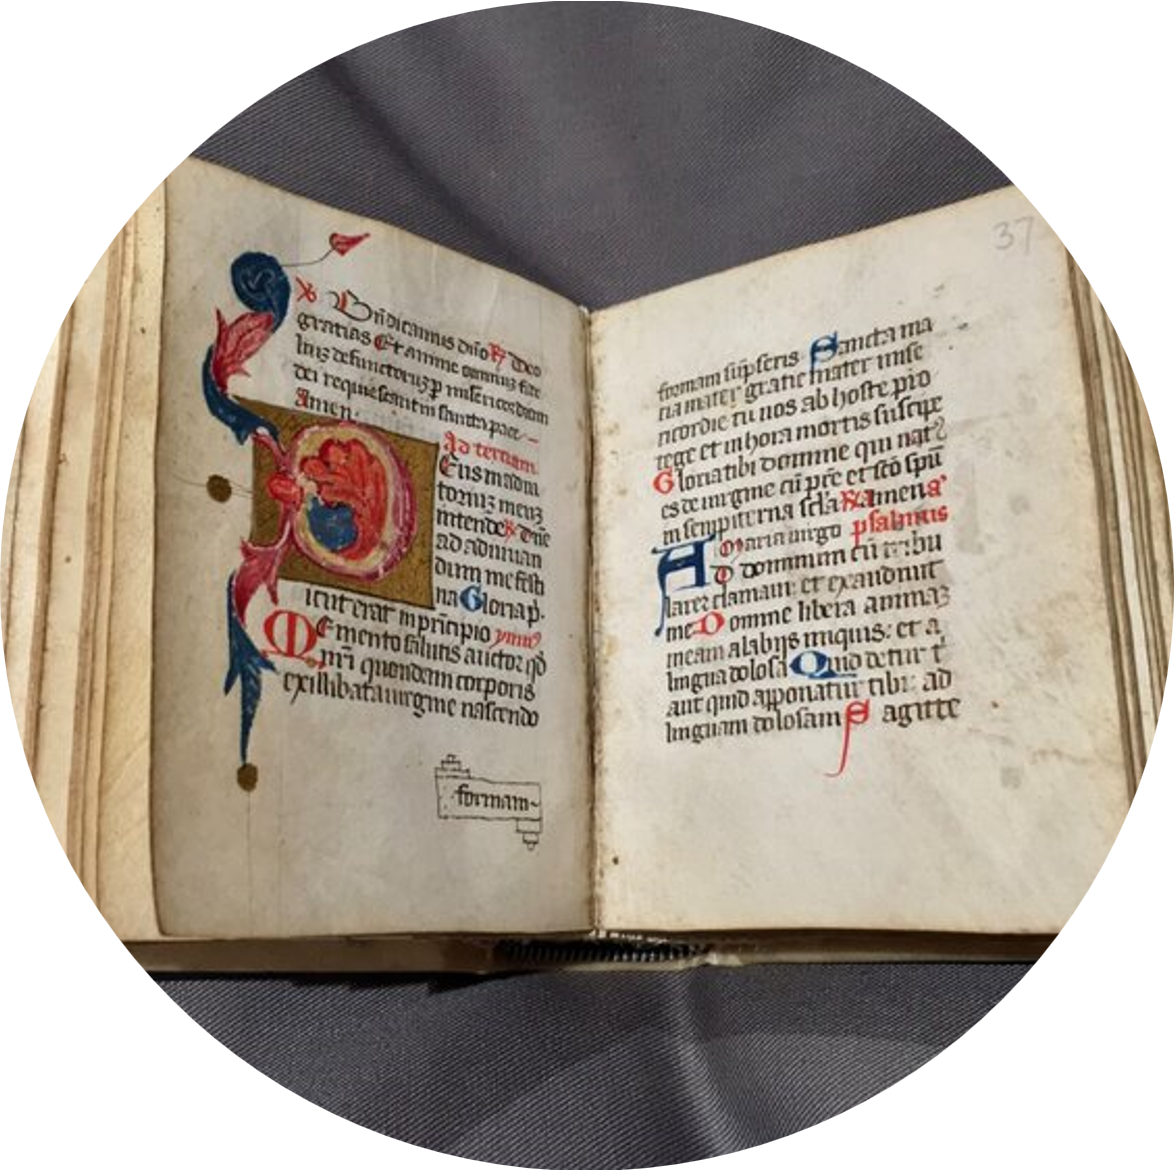 Bñdicamus dño ꝶ Deo
gratias Et anime omniuȝ fide
liuȝ defunctoruȝ ꝑ misericordiam
dei requiescant in sancta pace
Amen.
Ad tertiam.
Eus in adiu
toriuȝ meuȝ
intende ꝶ Dñe
ad adiuuan
dum me festi
na Gloria p̄.
icut erat in pr̄icipio ymnꝰ
Memento salutis auctor qd̓
nr̄i quondam corporis
ex illibata uirgine nascendo
formam
37
formam sūpseris Sancta ma
ria mater gratie mater mise
ricordie tu nos ab hoste pro
tege et in hora mortis suscipe
Gloria tibi domine qui nat᷒
es de uirgine cū p̄re et sc̄o spū
in sempiterna sc̄la ꝶ Amen a᷒
Maria uirgo psalmus
AD dominum cū tribu
larer clamaui: et exaudiuit
me Domine libera animaȝ
meam a labijs iniquis: et a
lingua dolosa Quid detur t̓
aut quid apponatur tibi: ad
linguam dolosam Sagitte